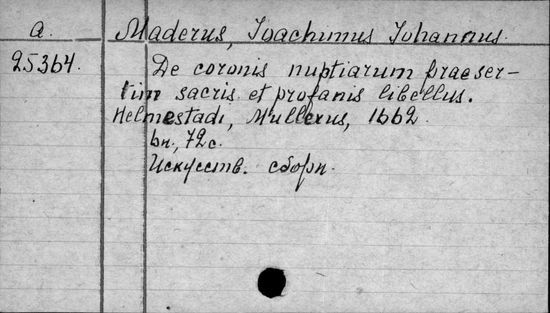 a. Maderus, Joachimus Johannus.
25364. De coronis nuptiarum praeser-
tim sacris et profanis libellus.
Helmestadi, Mullerus, 1662.
бп., 72 с.
Искусств. сборн.